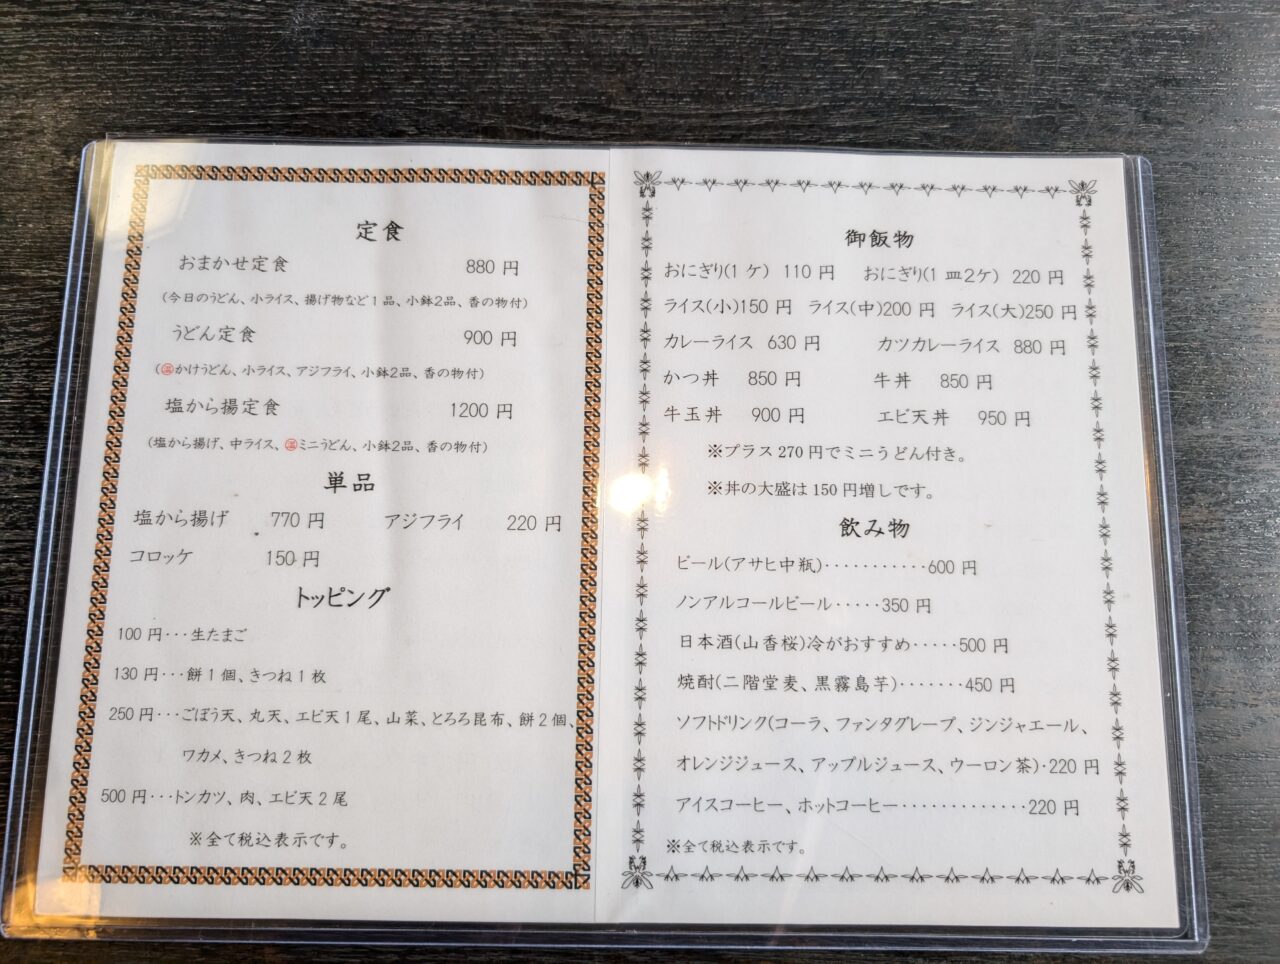 定食
おまかせ定食 880 円
(今日のうどん、小ライス、揚げ物など1品、小鉢2品、香の物付)
うどん定食 900 円
(温かけうどん、小ライス、アジフライ、小鉢2品、香の物付)
塩から揚定食 1200 円
(塩から揚げ、中ライス、温ミニうどん、小鉢2品、香の物付)
単品
塩から揚げ 770 円 アジフライ 220 円
コロッケ 150 円
トッピング
100 円･･･生たまご
130 円･･･餅1個、きつね1枚
250 円･･･ごぼう天、丸天、エビ天1尾、山菜、とろろ昆布、餅2個、
ワカメ、きつね2枚
500 円･･･トンカツ、肉、エビ天2尾
※全て税込表示です。
御飯物
おにぎり(1ケ) 110 円 おにぎり(1皿2ケ) 220 円
ライス(小)150 円 ライス(中)200 円 ライス(大)250 円
カレーライス 630 円 カツカレーライス 880 円
かつ丼 850 円 牛丼 850 円
牛玉丼 900 円 エビ天丼 950 円
※プラス270円でミニうどん付き。
※丼の大盛は150円増しです。
飲み物
ビール(アサヒ中瓶)･･･････････600 円
ノンアルコールビール･････350 円
日本酒(山香桜)冷がおすすめ･････500 円
焼酎(二階堂麦、黒霧島芋)･･･････450 円
ソフトドリンク(コーラ、ファンタグレープ、ジンジャエール、
オレンジジュース、アップルジュース、ウーロン茶)･220 円
アイスコーヒー、ホットコーヒー･････････････220 円
※全て税込表示です。